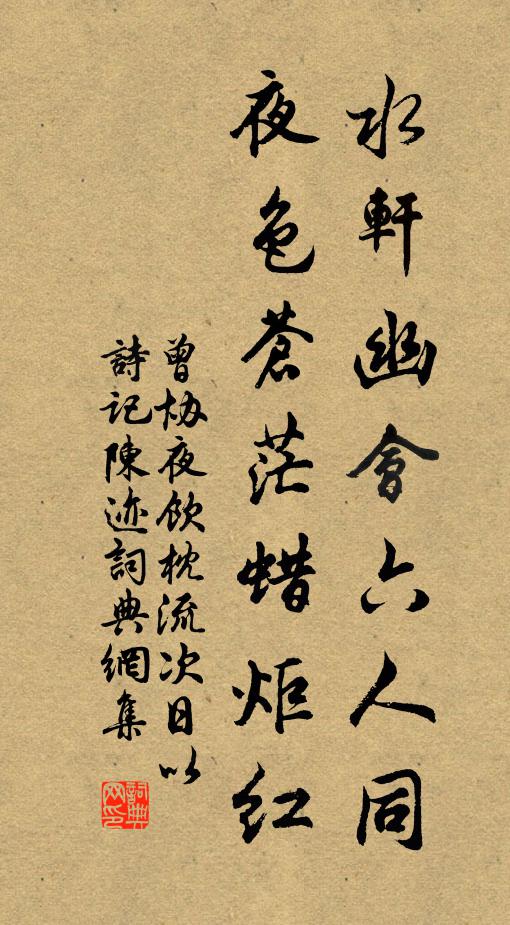 水軒幽會六人同
夜色蒼茫蜡炬红
曾协夜飲枕流次日以
詩記陳迹詞典網集
詞典
网印